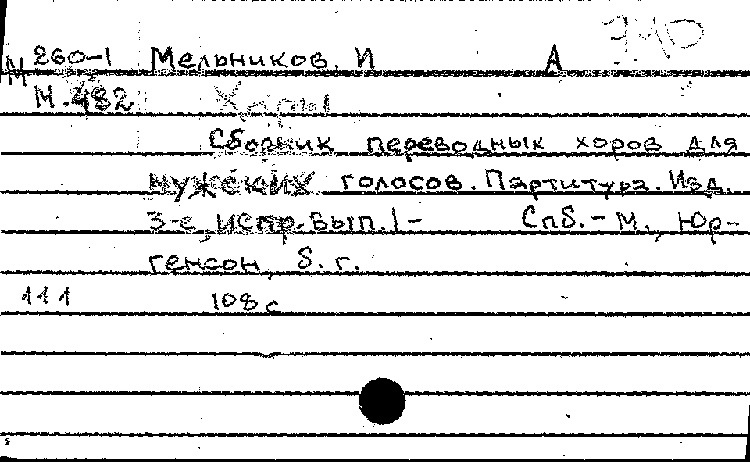 740
М 260-1 Мельников. И А
М.482 Хоры
Сборник переводных хоров для
мужских голосов. Партитура. Изд.
3-е, испр. Вып. 1 - Спб. - М., Юр-
генсон, б. г.
111 108 с